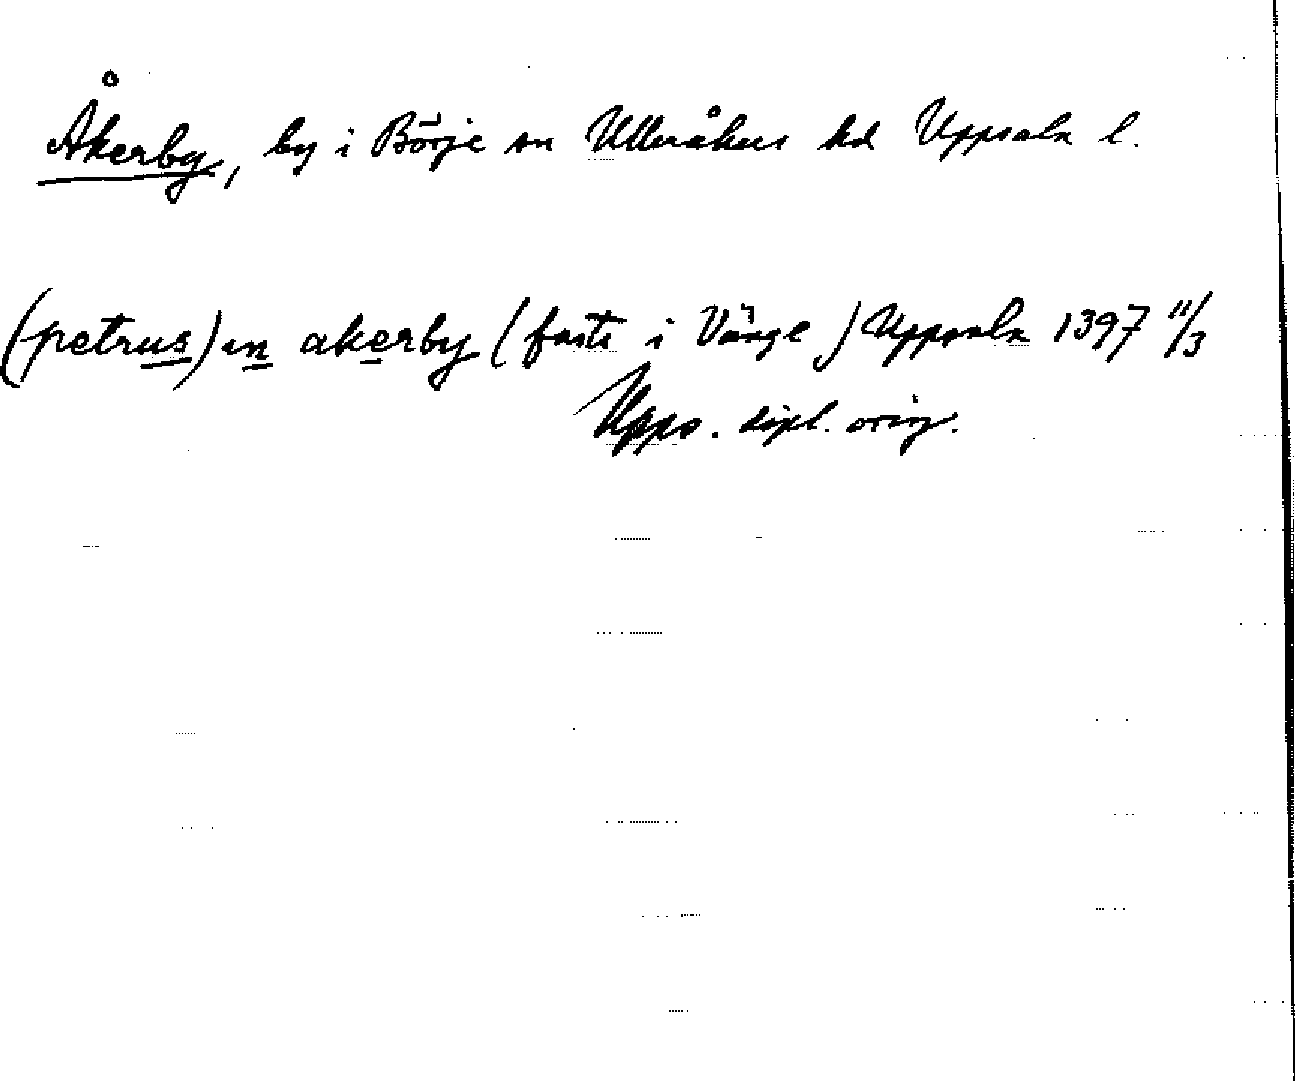 Åkerby, by i Börje sn Ulleråkers hd Uppsala l.
(petrus) in akerby (faste i Vänge) Uppsala 1397 11/3
Upps. dipl. orig.